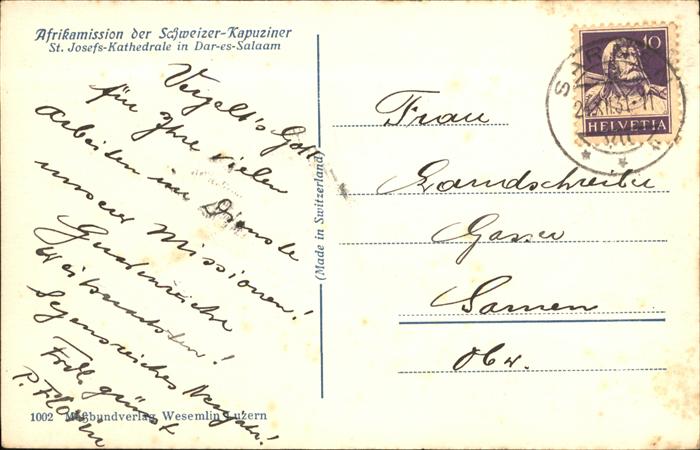 Afrikamission der Schweizer-Kapuziner
St. Josefs-Kathedrale in Dar-es-Salaam
Vergelt's Gott
für Ihre vielen
Arbeiten im Dienste
unserer Missionen!
Gnadenreiche
Weihnachten!
Segensreiches Neujahr!
Frdl. grüsst
P. Florin
1002 Meßbundverlag Wesemlin Luzern
(Made in Switzerland)
10
HELVETIA
Frau
Landschreiber
Gasser
Sarnen
Obw.